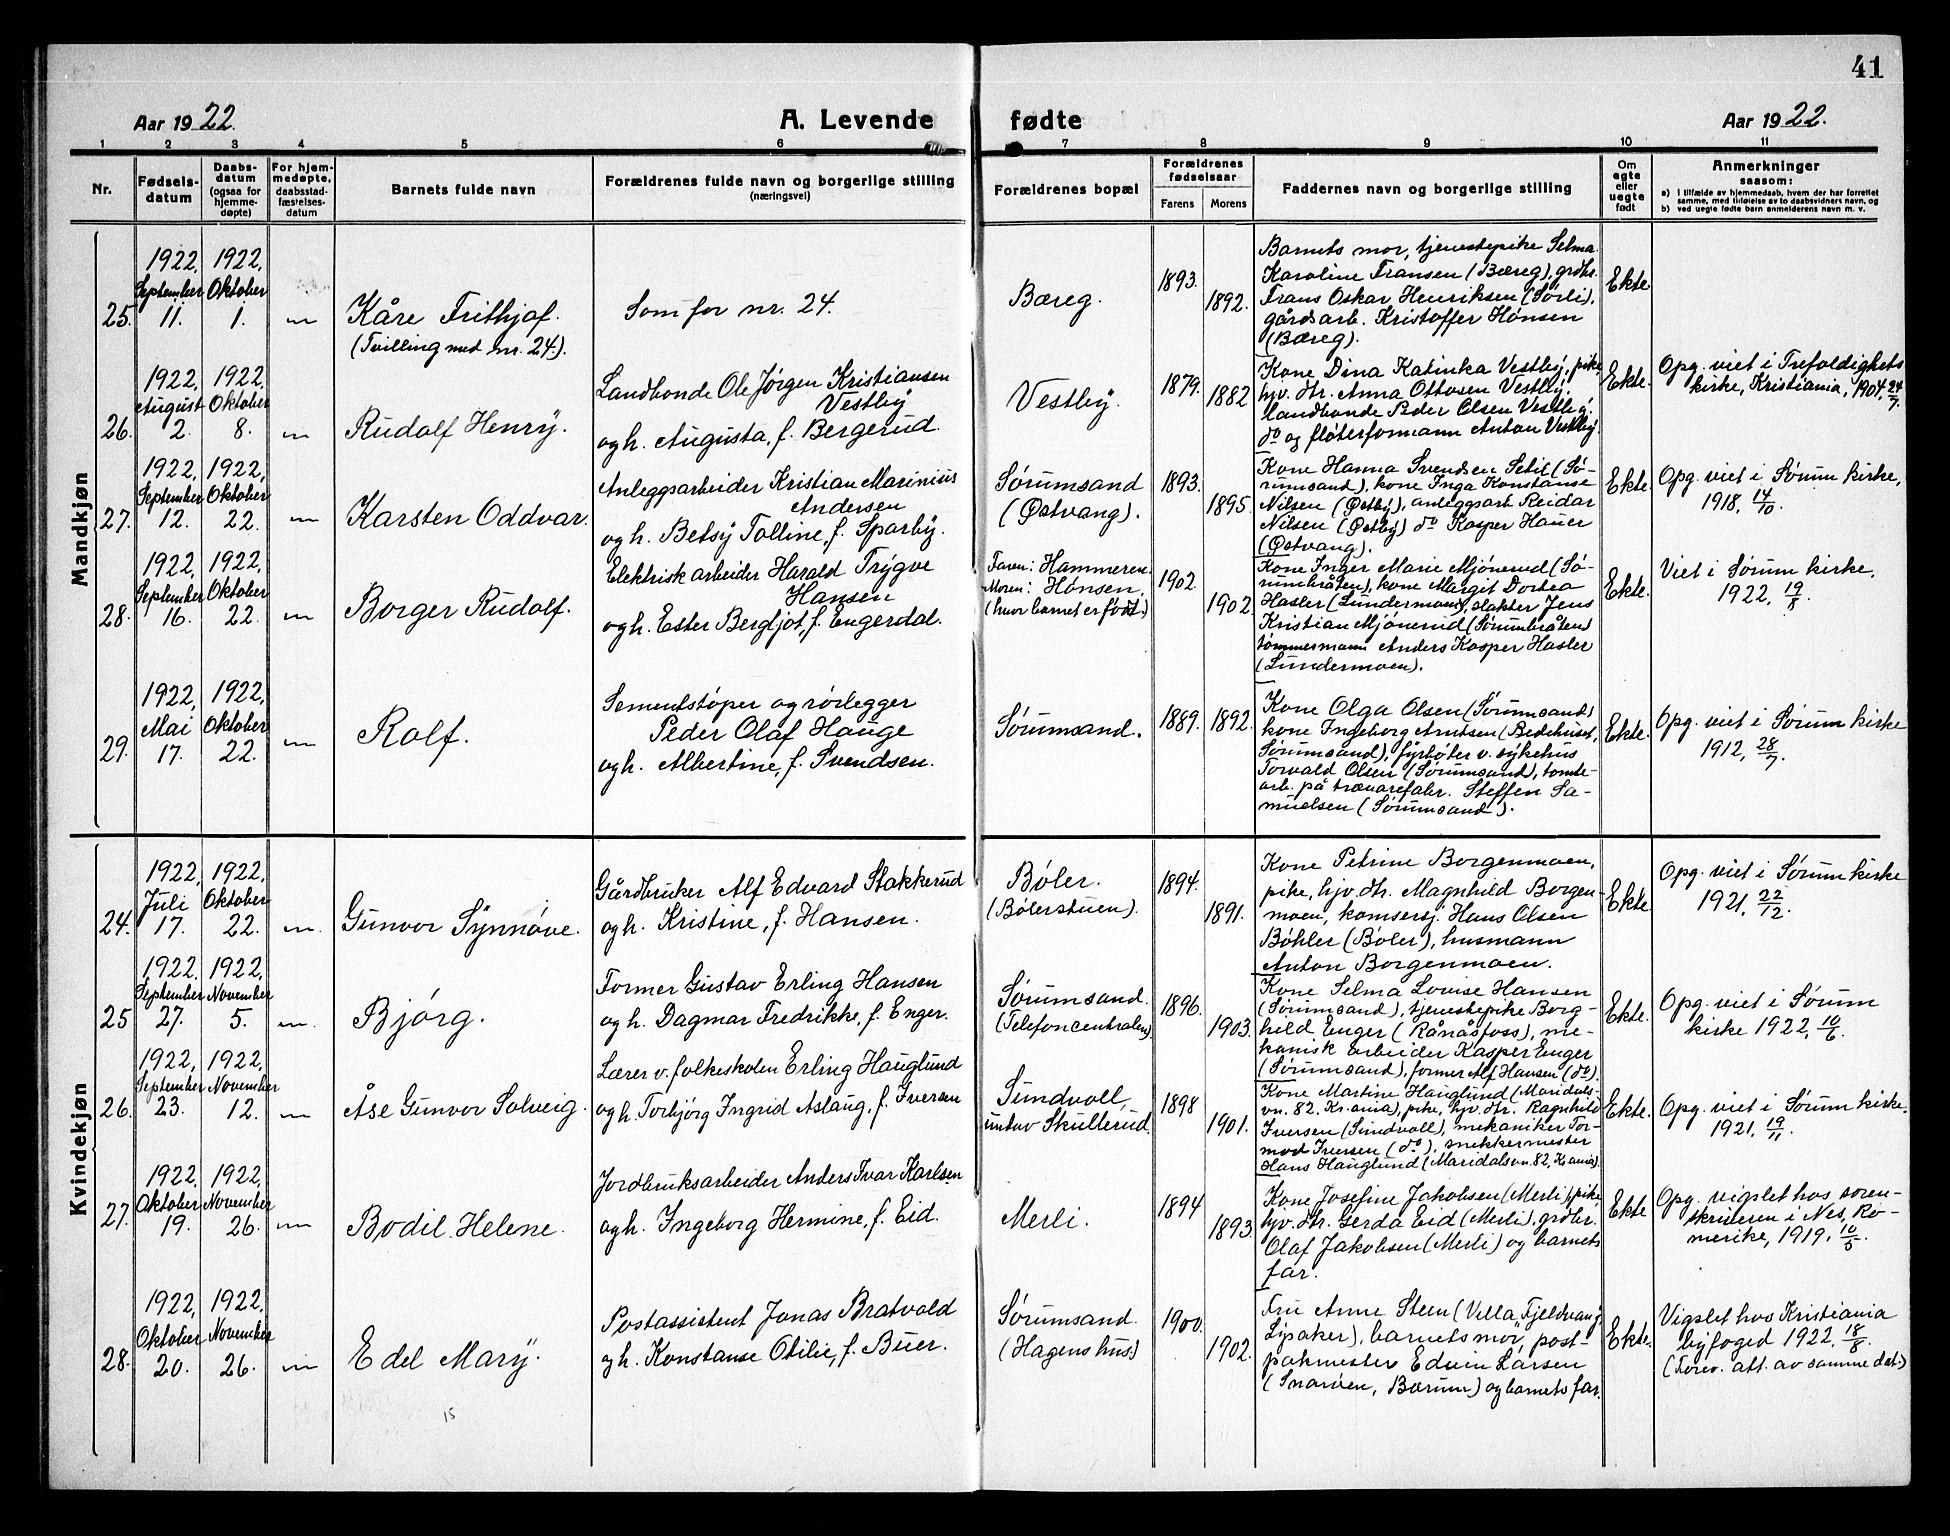 41
Aar 1922.
A. Levende fødte
Aar 1922.
1 2 3 4 5 6 7 8 9 10 11
Nr.
Fødselsdatum
Daabsdatum (ogsaa for hjemmedøpte)
For hjemmedøpte, daabsstadfæstelsesdatum
Barnets fulde navn
Forældrenes fulde navn og borgerlige stilling
(næringsvei)
Forældrenes bopæl
Forældrenes fødselsaar
Farens. Morens.
Faddernes navn og borgerlige stilling
Om egte eller uegte født
Anmerkninger
saasom:
a) I tilfælde av hjemmedaab, hvem der har forrettet
samme, med tilføielse av to daabsvidners navn, og
b) ved uegte fødte barn anmelderens navn m. v.
Mandkjøn
25.
1922, September 11.
1922, Oktober 1.
Kåre Frithjof.
(Tvilling med nr. 24.).
Som for nr. 24.
Bæreg.
1893.
1892.
Barnets mor, tjenestepike Selma
Karoline Fransen (Bæreg), grdbr.
Frans Oskar Henriksen (Sørli),
gårdsarb. Kristoffer Hønsen
(Bæreg).
Ekte
26.
1922, August 2.
1922, Oktober 8.
Rudolf Henry.
Landbonde Ole Jørgen Kristiansen
Vestby
og h. Augusta, f. Bergerud.
Vestby.
1879.
1882
Kone Dina Katinka Vestby, pike,
hjv. dtr. Anna Ottosen Vestby,
landbonde Peder Olsen Vestby,
do og fløterformann Anton Vestby.
Ekte.
Opg. viet i Trefoldighets
kirke, Kristiania, 1904, 24/7.
27.
1922, September 12.
1922, Oktober 22.
Karsten Oddvar.
Anleggsarbeider Kristian Marinius
Andersen
og h. Betsy Tolline, f. Sparby.
Sørumsand
(Østvang).
1893.
1895.
Kone Hanna Svendsen Setil (Sø-
rumsand), kone Inga Konstanse
Nilsen (Østby), anleggsarb. Reidar
Nilsen (Østby) do Kasper Hauer
(Østvang).
Ekte.
Opg. viet i Sørum kirke,
1918, 14/10.
28.
1922, September 16.
1922, Oktober 22.
Borger Rudolf.
Elektrisk arbeider Harald Trygve
Hansen
og h. Ester Bergljot, f. Engerdal.
Faren: Hammeren.
Moren: Hønsen,
(hvor barnet er født.)
1902.
1902.
Kone Inger Marie Mjønerud (Sø-
rumbråten), kone Margit Dortea
Hasler (Lundermoen), slakter Jens
Kristian Mjønerud (Sørumbråten)
tømmermann Anders Kasper Hasler
(Lundermoen).
Ekte.
Viet i Sørum kirke,
1922, 19/8.
29.
1922, Mai 17.
1922, Oktober 22.
Rolf.
Sementstøper og rørlegger
Peder Olaf Hauge
og h. Albertine, f. Svendsen.
Sørumsand.
1889.
1892.
Kone Olga Olsen (Sørumsand)
kone Ingeborg Arntsen (Bedehuset,
Sørumsand), fyrbøter v. sykehus
Torvald Olsen (Sørumsand), tomte-
arb. på trævarefabr. Steffen Sa-
muelsen (Sørumsand).
Ekte.
Opg. viet i Sørum kirke
1912, 28/7.
Kvindekjøn
24.
1922, Juli 17.
1922, Oktober 22.
Gunvor Synnøve.
Gårdbruker Alf Edvard Stakkerud
og h. Kristine, f. Hansen.
Bøler.
(Bølerstuen).
1894.
1891.
Kone Petrine Borgenmoen,
pike, hjv. dtr. Magnhild Borgen-
moen, Hans Olsen
Bøhler (Bøler), husmann
Anton Borgenmoen.
Ekte
Opg. viet i Sørum kirke
1921, 22/12.
25
1922, September 27.
1922, November 5.
Bjørg.
Former Gustav Erling Hansen
og h. Dagmar Fredrikke, f. Enger.
Sørumsand.
(Telefoncentralen)
1896.
1903.
Kone Selma Lovise Hansen
(Sørumsand), tjenestepike Borg-
hild Enger (Rånåsfoss), me-
kanisk arbeider Kasper Enger
(Sørumsand), former Alf Hansen (do).
Ekte.
Opg. viet i Sørum
kirke 1922, 10/6.
26.
1922, September 23.
1922, November 12.
Åse Gunvor Solveig.
Lærer v. folkeskolen Erling Hauglund
og h. Torbjørg Ingrid Aslaug, f. Iversen
Sundvoll,
untav Skullerud.
1898
1901.
Kone Martine Hauglund (Maridals-
vn. 82, Kr.ania), pike, hjv. dtr. Ragnhild
Iversen (Sundvoll), mekaniker Tor-
mod Iversen (do), snekkermester
Hans Hauglund (Maridalsvn. 82, Kr.ania).
Ekte.
Opg. viet i Sørum kirke.
1921, 19/11.
27.
1922, Oktober 19.
1922, November 26.
Bodil Helene.
Jordbruksarbeider Anders Ivar Karlsen
og h. Ingeborg Hermine, f. Eid.
Merli.
1894
1893.
Kone Josefine Jakobsen (Merli), pike,
hjv. dtr. Gerda Eid (Merli), grdbr.
Olaf Jakobsen (Merli) og barnets
far.
Ekte
Opg. vigslet hos soren-
skriveren i Nes, Ro-
merike, 1919, 10/5.
28.
1922, Oktober 20.
1922, November 26.
Edel Mary.
Postassistent Jonas Bratvold
og h. Konstanse Otilie, f. Buer.
Sørumsand.
(Hagens hus.)
1900.
1902.
Fru Anne Steen (Villa Fjeldvang,
Lysaker), barnets mor, post-
pakmester Edvin Larsen
(Snarøen, Bærum) og barnets far.
Ekte.
Vigslet hos Kristiania
byfoged 1922, 18/8.
(Forev. att. av samme dat.)
15